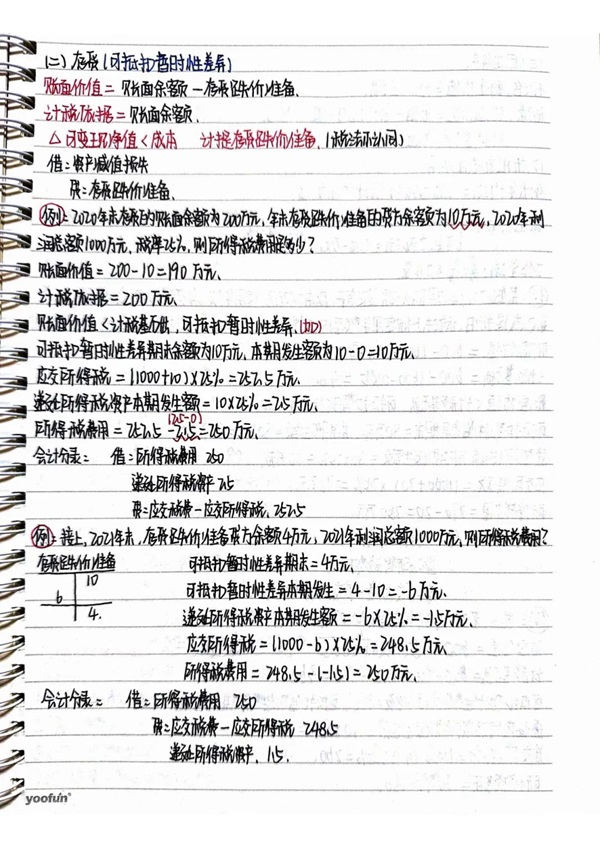 (二) 存货(可抵扣暂时性差异)
账面价值 = 账面余额 - 存货跌价准备.
计税依据 = 账面余额.
△可变现净值<成本 计提存货跌价准备.(税法不认同)
借:资产减值损失
贷:存货跌价准备.
例:2020年末存货的账面余额为200万元,年末存货跌价准备的贷方余额为10万元,2020年利
润总额1000万元,税率25%,则所得税费用是多少?
账面价值 = 200-10=190万元.
计税依据 = 200万元.
账面价值<计税基础,可抵扣暂时性差异.(加)
可抵扣暂时性差异期末余额为10万元,本期发生额为10-0=10万元.
应交所得税 = (1000+10)×25% = 252.5万元.
递延所得税资产本期发生额 = 10×25% = 2.5万元.
(2.5-0)
所得税费用 = 252.5 - 2.5 = 250万元.
会计分录: 借:所得税费用 250
递延所得税资产 2.5
贷:应交税费-应交所得税. 252.5
例:接上,2021年末,存货跌价准备贷方余额4万元,2021年利润总额1000万元,则所得税费用?
存货跌价准备 可抵扣暂时性差异期末 = 4万元.
10 可抵扣暂时性差异本期发生 = 4-10 = -6万元.
6 递延所得税资产本期发生额 = -6×25% = -1.5万元.
4. 应交所得税 = (1000-6)×25% = 248.5万元.
所得税费用 = 248.5 - (-1.5) = 250万元.
会计分录: 借:所得税费用 250
贷:应交税费-应交所得税 248.5
递延所得税资产. 1.5.
yoofun®